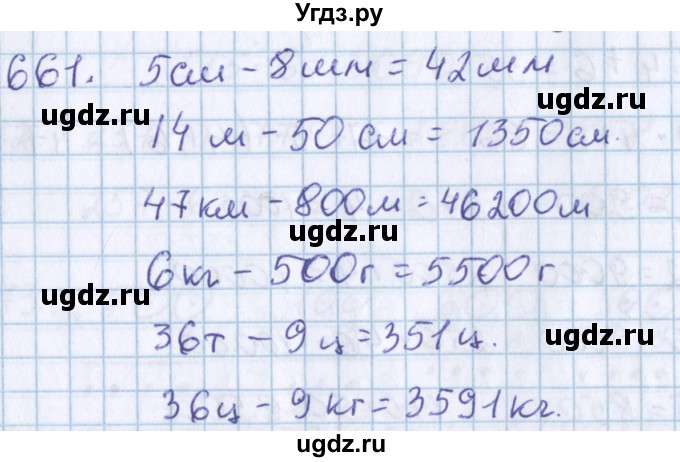 Угдз.ру
661. 5см - 8мм = 42мм
ugdz.ru ugdz.ru
14 м - 50 см = 1350см.
47км - 800м = 46200м
ugdz.ru
6кг - 500г = 5500г
ugdz.ru
36т - 9 ц = 351ц.
ugdz.ru
ugdz.ru
36ц - 9 кг = 3591кг.
ugdz.ru